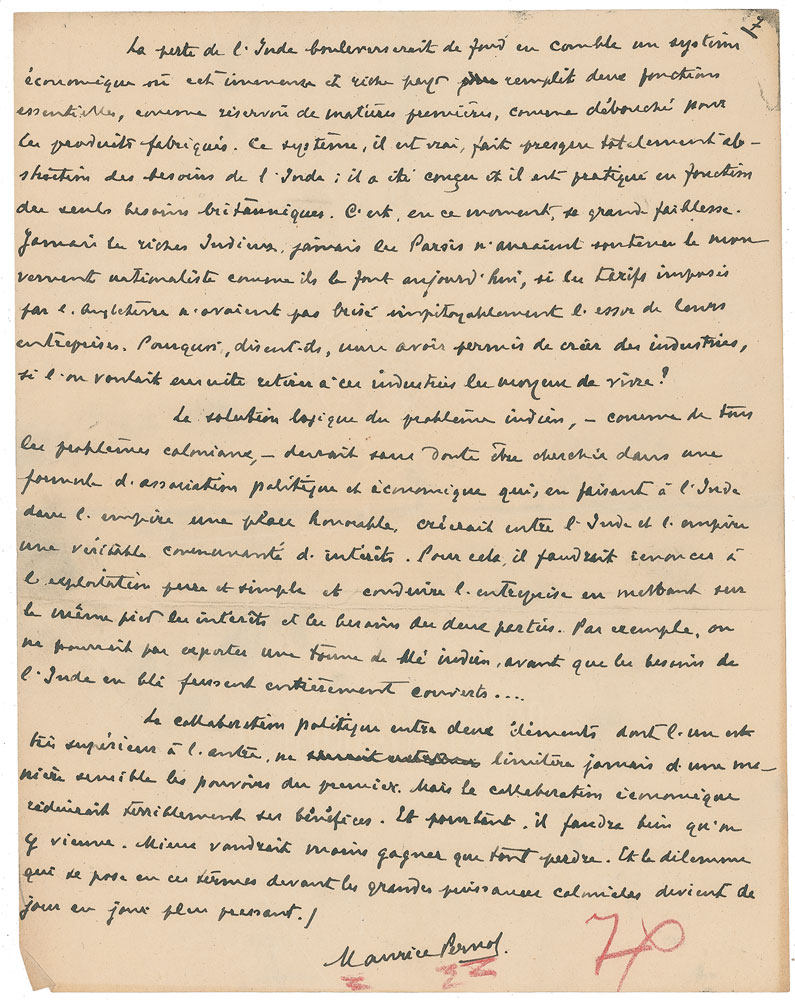 7
La perte de l'Inde bouleverserait de fond en comble un système
économique où cet immense et riche pays remplit deux fonctions
essentielles, comme réservoir de matières premières, comme débouché pour
les produits fabriqués. Ce système, il est vrai, fait presque totalement ab-
straction des besoins de l'Inde ; il a été conçu et il est pratiqué en fonction
des seuls besoins britanniques. C'est, en ce moment, sa grande faiblesse.
Jamais les riches Indiens, jamais les Parsis n'auraient soutenu le mou
vement nationaliste comme ils le font aujourd'hui, si les tarifs imposés
par l'Angleterre n'avaient pas brisé impitoyablement l'essor de leurs
entreprises. Pourquoi, disent-ils, nous avoir permis de créer des industries,
si l'on voulait ensuite retirer à ces industries les moyens de vivre ?
La solution logique du problème indien, – comme de tous
les problèmes coloniaux, – devrait sans doute être cherchée dans une
formule d'association politique et économique qui, en faisant à l'Inde
dans l'empire une place honorable, créerait entre l'Inde et l'empire
une véritable communauté d'intérêts. Pour cela, il faudrait renoncer à
l'exploitation pure et simple et conduire l'entreprise en mettant sur
le même pied les intérêts et les besoins des deux parties. Par exemple, on
ne pourrait pas exporter une tonne de blé indien, avant que les besoins de
l'Inde en blé fussent entièrement couverts....
La collaboration politique entre deux éléments dont l'un est
très supérieur à l'autre, ne limitera jamais d'une ma-
nière sensible les pouvoirs du premier. Mais la collaboration économique
réduirait terriblement ses bénéfices. Et pourtant, il faudra bien qu'on
y vienne. Mieux vaudrait moins gagner que tout perdre. Et le dilemme
qui se pose en ces termes devant les grandes puissances coloniales devient de
jour en jour plus pressant. /
Maurice Pernot.